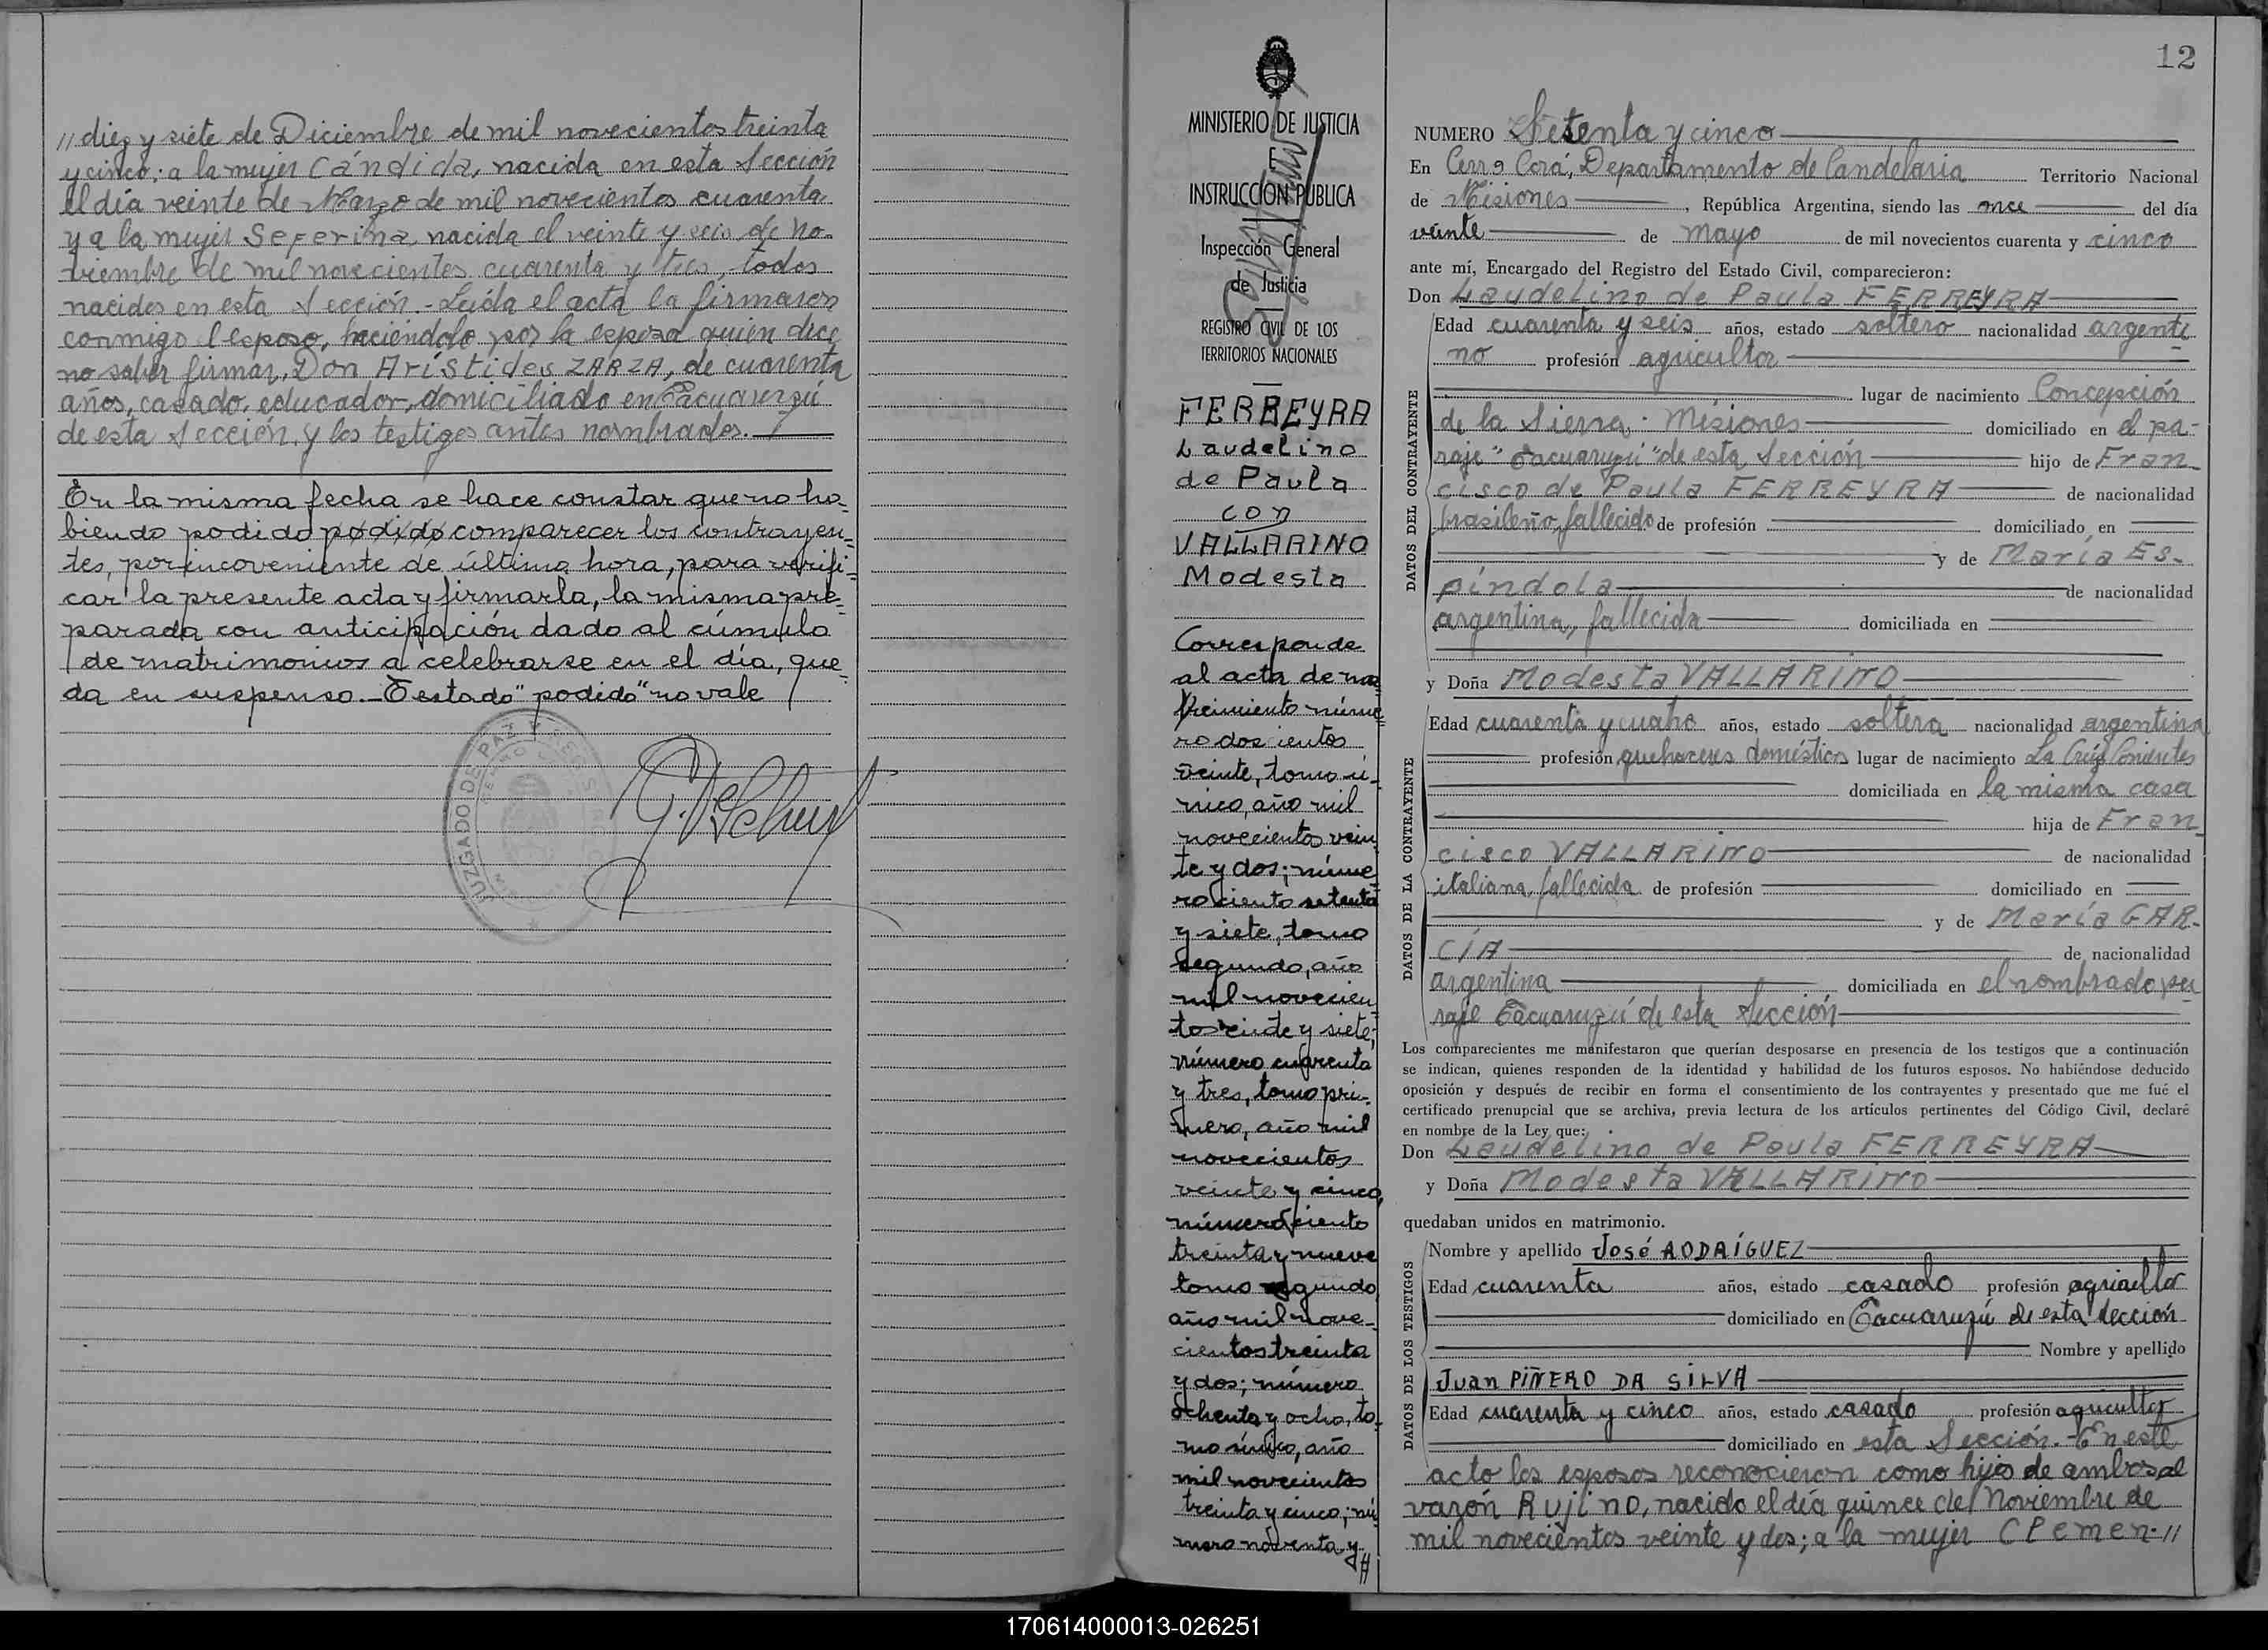 // diez y siete de Diciembre de mil novecientos treinta
y cinco; a la mujer Cándida, nacida en esta Sección
el día veinte de Marzo de mil novecientos cuarenta
y a la mujer Seferina, nacida el veinte y seis de No-
viembre de mil novecientos cuarenta y tres, todos
nacidos en esta Sección.- Leída el acta la firmaron
conmigo el esposo, haciéndolo por la esposa quien dice
no saber firmar, Don Arístides ZARZA, de cuarenta
años, casado, educador, domiciliado en Tacuaruzú
de esta Sección, y los testigos antes nombrados.-
En la misma fecha se hace constar que no ha-
biendo podido podido comparecer los contrayen-
tes, por incoveniente de última hora, para verifi-
car la presente acta y firmarla, la misma pre-
parada con anticipación dado al cúmulo
de matrimonios a celebrarse en el día, que-
da en suspenso.- Testado "podido" no vale
JUZGADO DE PAZ Y REGISTRO
MINISTERIO DE JUSTICIA
INSTRUCCION PUBLICA
Inspección General
de Justicia
REGISTRO CIVIL DE LOS
TERRITORIOS NACIONALES
FERREYRA
Laudelino
de Paula
con
VALLARINO
Modesta
Corresponde
al acta de na-
cimiento núme-
ro doscientos
veinte, tomo ú-
nico, año mil
novecientos vein-
te y dos; núme-
ro ciento setenta
y siete, tomo
segundo, año
mil novecien-
tos veinte y siete;
número cuarenta
y tres, tomo pri-
mero, año mil
novecientos
veinte y cinco,
número ciento
treinta y nueve
tomo segundo,
año mil nove-
cientos treinta
y dos; número
ochenta y ocho, to-
mo único, año
mil novecientos
treinta y cinco; nú-
mero noventa y
//
12
NUMERO Setenta y cinco
En Cerro Corá, Departamento de Candelaria Territorio Nacional
de Misiones, República Argentina, siendo las once del día
veinte de mayo de mil novecientos cuarenta y cinco
ante mí, Encargado del Registro del Estado Civil, comparecieron:
Don Laudelino de Paula FERREYRA
DATOS DEL CONTRAYENTE
Edad cuarenta y seis años, estado soltero nacionalidad argenti-
no profesión agricultor
lugar de nacimiento Concepción
de la Sierra - Misiones domiciliado en el pa-
raje "Tacuaruzú" de esta Sección hijo de Fran-
cisco de Paula FERREYRA de nacionalidad
brasileño, fallecido de profesión domiciliado en
y de María Es-
píndola de nacionalidad
argentina, fallecida domiciliada en
y Doña Modesta VALLARINO
DATOS DE LA CONTRAYENTE
Edad cuarenta y cuatro años, estado soltera nacionalidad argentina
profesión quehaceres domésticos lugar de nacimiento La Cruz Corrientes
domiciliada en la misma casa
hija de Fran-
cisco VALLARINO de nacionalidad
italiana, fallecida de profesión domiciliado en
y de María GAR-
CÍA de nacionalidad
argentina domiciliada en el nombrado pa-
raje Tacuaruzú de esta Sección
Los comparecientes me manifestaron que querían desposarse en presencia de los testigos que a continuación
se indican, quienes responden de la identidad y habilidad de los futuros esposos. No habiéndose deducido
oposición y después de recibir en forma el consentimiento de los contrayentes y presentado que me fué el
certificado prenupcial que se archiva, previa lectura de los artículos pertinentes del Código Civil, declaré
en nombre de la Ley que:
Don Laudelino de Paula FERREYRA
y Doña Modesta VALLARINO
quedaban unidos en matrimonio.
DATOS DE LOS TESTIGOS
Nombre y apellido José RODRÍGUEZ
Edad cuarenta años, estado casado profesión agricultor
domiciliado en Tacuaruzú de esta Sección
Nombre y apellido
Juan PIÑERO DA SILVA
Edad cuarenta y cinco años, estado casado profesión agricultor
domiciliado en esta Sección.- En este
acto los esposos reconocieron como hijos de ambos al
varón Rufino, nacido el día quince de Noviembre de
mil novecientos veinte y dos; a la mujer Clemen-//
170614000013-026251